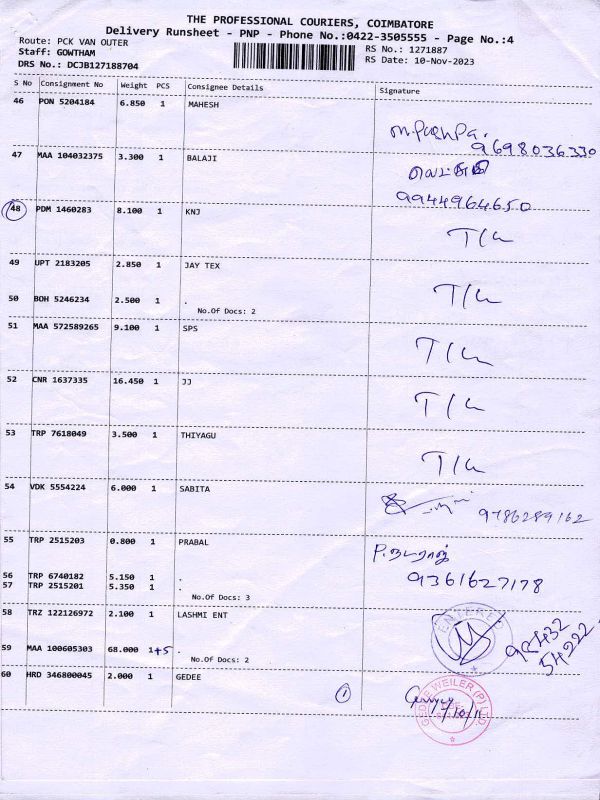 THE PROFESSIONAL COURIERS, COIMBATORE
Delivery Runsheet - PNP - Phone No.:0422-3505555 - Page No.:4
Route: PCK VAN OUTER
RS No.: 1271887
Staff: GOWTHAM
RS Date: 10-Nov-2023
DRS No.: DCJB127188704
S No Consignment No Weight PCS Consignee Details Signature
46 PON 5204184 6.850 1 MAHESH
9698036330
47 MAA 104032375 3.300 1 BALAJI
9944964650
48 PDM 1460283 8.100 1 KNJ
T/L
49 UPT 2183205 2.850 1 JAY TEX
T/L
50 BOH 5246234 2.500 1 .
No.Of Docs: 2
51 MAA 572589265 9.100 1 SPS
T/L
52 CNR 1637335 16.450 1 JJ
T/L
53 TRP 7618049 3.500 1 THIYAGU
T/L
54 VDK 5554224 6.000 1 SABITA
9786289162
55 TRP 2515203 0.800 1 PRABAL
P.நடராஜ்
9361627178
56 TRP 6740182 5.150 1 .
57 TRP 2515201 5.350 1 .
No.Of Docs: 3
58 TRZ 122126972 2.100 1 LASHMI ENT
54222
59 MAA 100605303 68.000 1+5 .
No.Of Docs: 2
60 HRD 346800045 2.000 1 GEDEE
1
GEDEE WEILER (P) LTD.